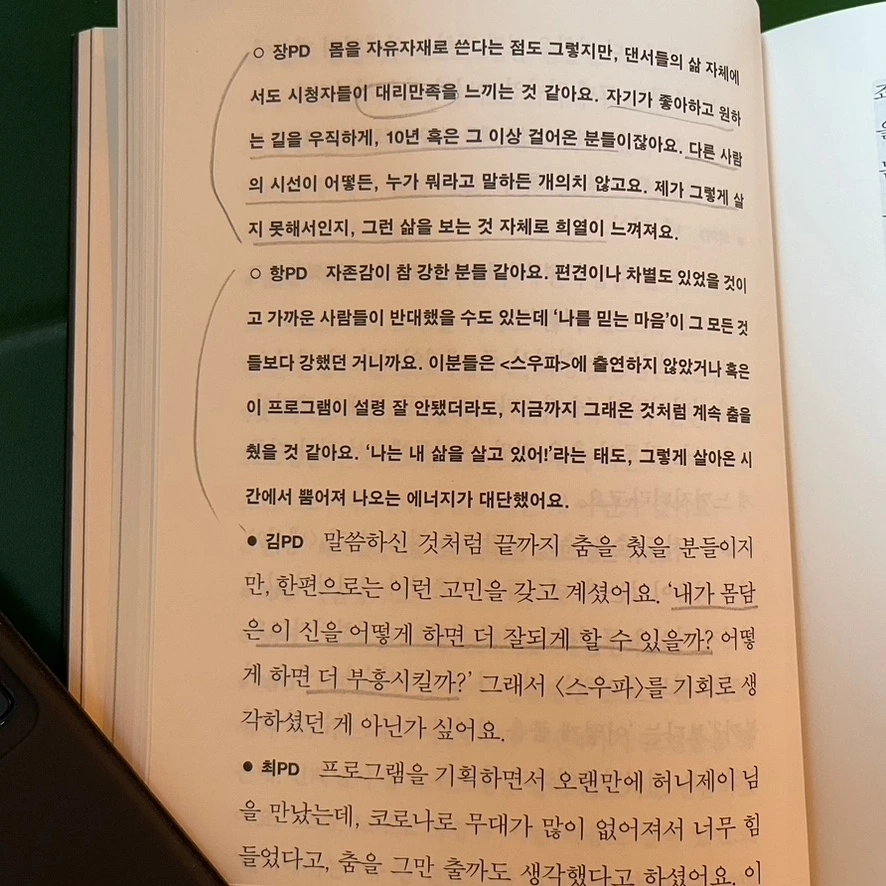 ○ 장PD 몸을 자유자재로 쓴다는 점도 그렇지만, 댄서들의 삶 자체에
서도 시청자들이 대리만족을 느끼는 것 같아요. 자기가 좋아하고 원하
는 길을 우직하게, 10년 혹은 그 이상 걸어온 분들이잖아요. 다른 사람
의 시선이 어떻든, 누가 뭐라고 말하든 개의치 않고요. 제가 그렇게 살
지 못해서인지, 그런 삶을 보는 것 자체로 희열이 느껴져요.
○ 항PD 자존감이 참 강한 분들 같아요. 편견이나 차별도 있었을 것이
고 가까운 사람들이 반대했을 수도 있는데 ‘나를 믿는 마음’이 그 모든 것
들보다 강했던 거니까요. 이분들은 <스우파>에 출연하지 않았거나 혹은
이 프로그램이 설령 잘 안됐더라도, 지금까지 그래온 것처럼 계속 춤을
췄을 것 같아요. ‘나는 내 삶을 살고 있어!’라는 태도, 그렇게 살아온 시
간에서 뿜어져 나오는 에너지가 대단했어요.
● 김PD 말씀하신 것처럼 끝까지 춤을 췄을 분들이지
만, 한편으로는 이런 고민을 갖고 계셨어요. ‘내가 몸담
은 이 신을 어떻게 하면 더 잘되게 할 수 있을까? 어떻
게 하면 더 부흥시킬까?’ 그래서 〈스우파〉를 기회로 생
각하셨던 게 아닌가 싶어요.
● 최PD 프로그램을 기획하면서 오랜만에 허니제이 님
을 만났는데, 코로나로 무대가 많이 없어져서 너무 힘
들었다고, 춤을 그만 출까도 생각했다고 하셨어요. 이